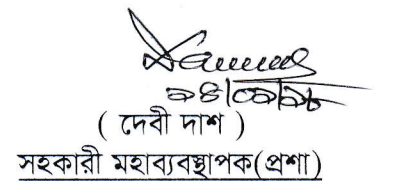 ( দেবী দাশ )
সহকারী মহাব্যবস্থাপক(প্রশা)